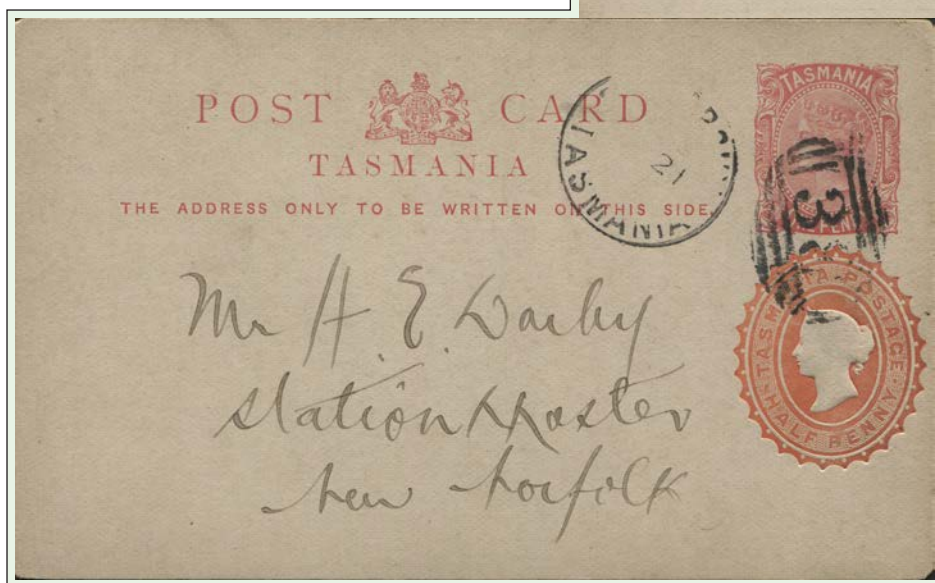 POST CARD
TASMANIA
THE ADDRESS ONLY TO BE WRITTEN ON THIS SIDE.
TASMANIA
21
TASMANIA
TASMANIA POSTAGE
HALF PENNY
Mr H. E. Darby
Station Master
New Norfolk